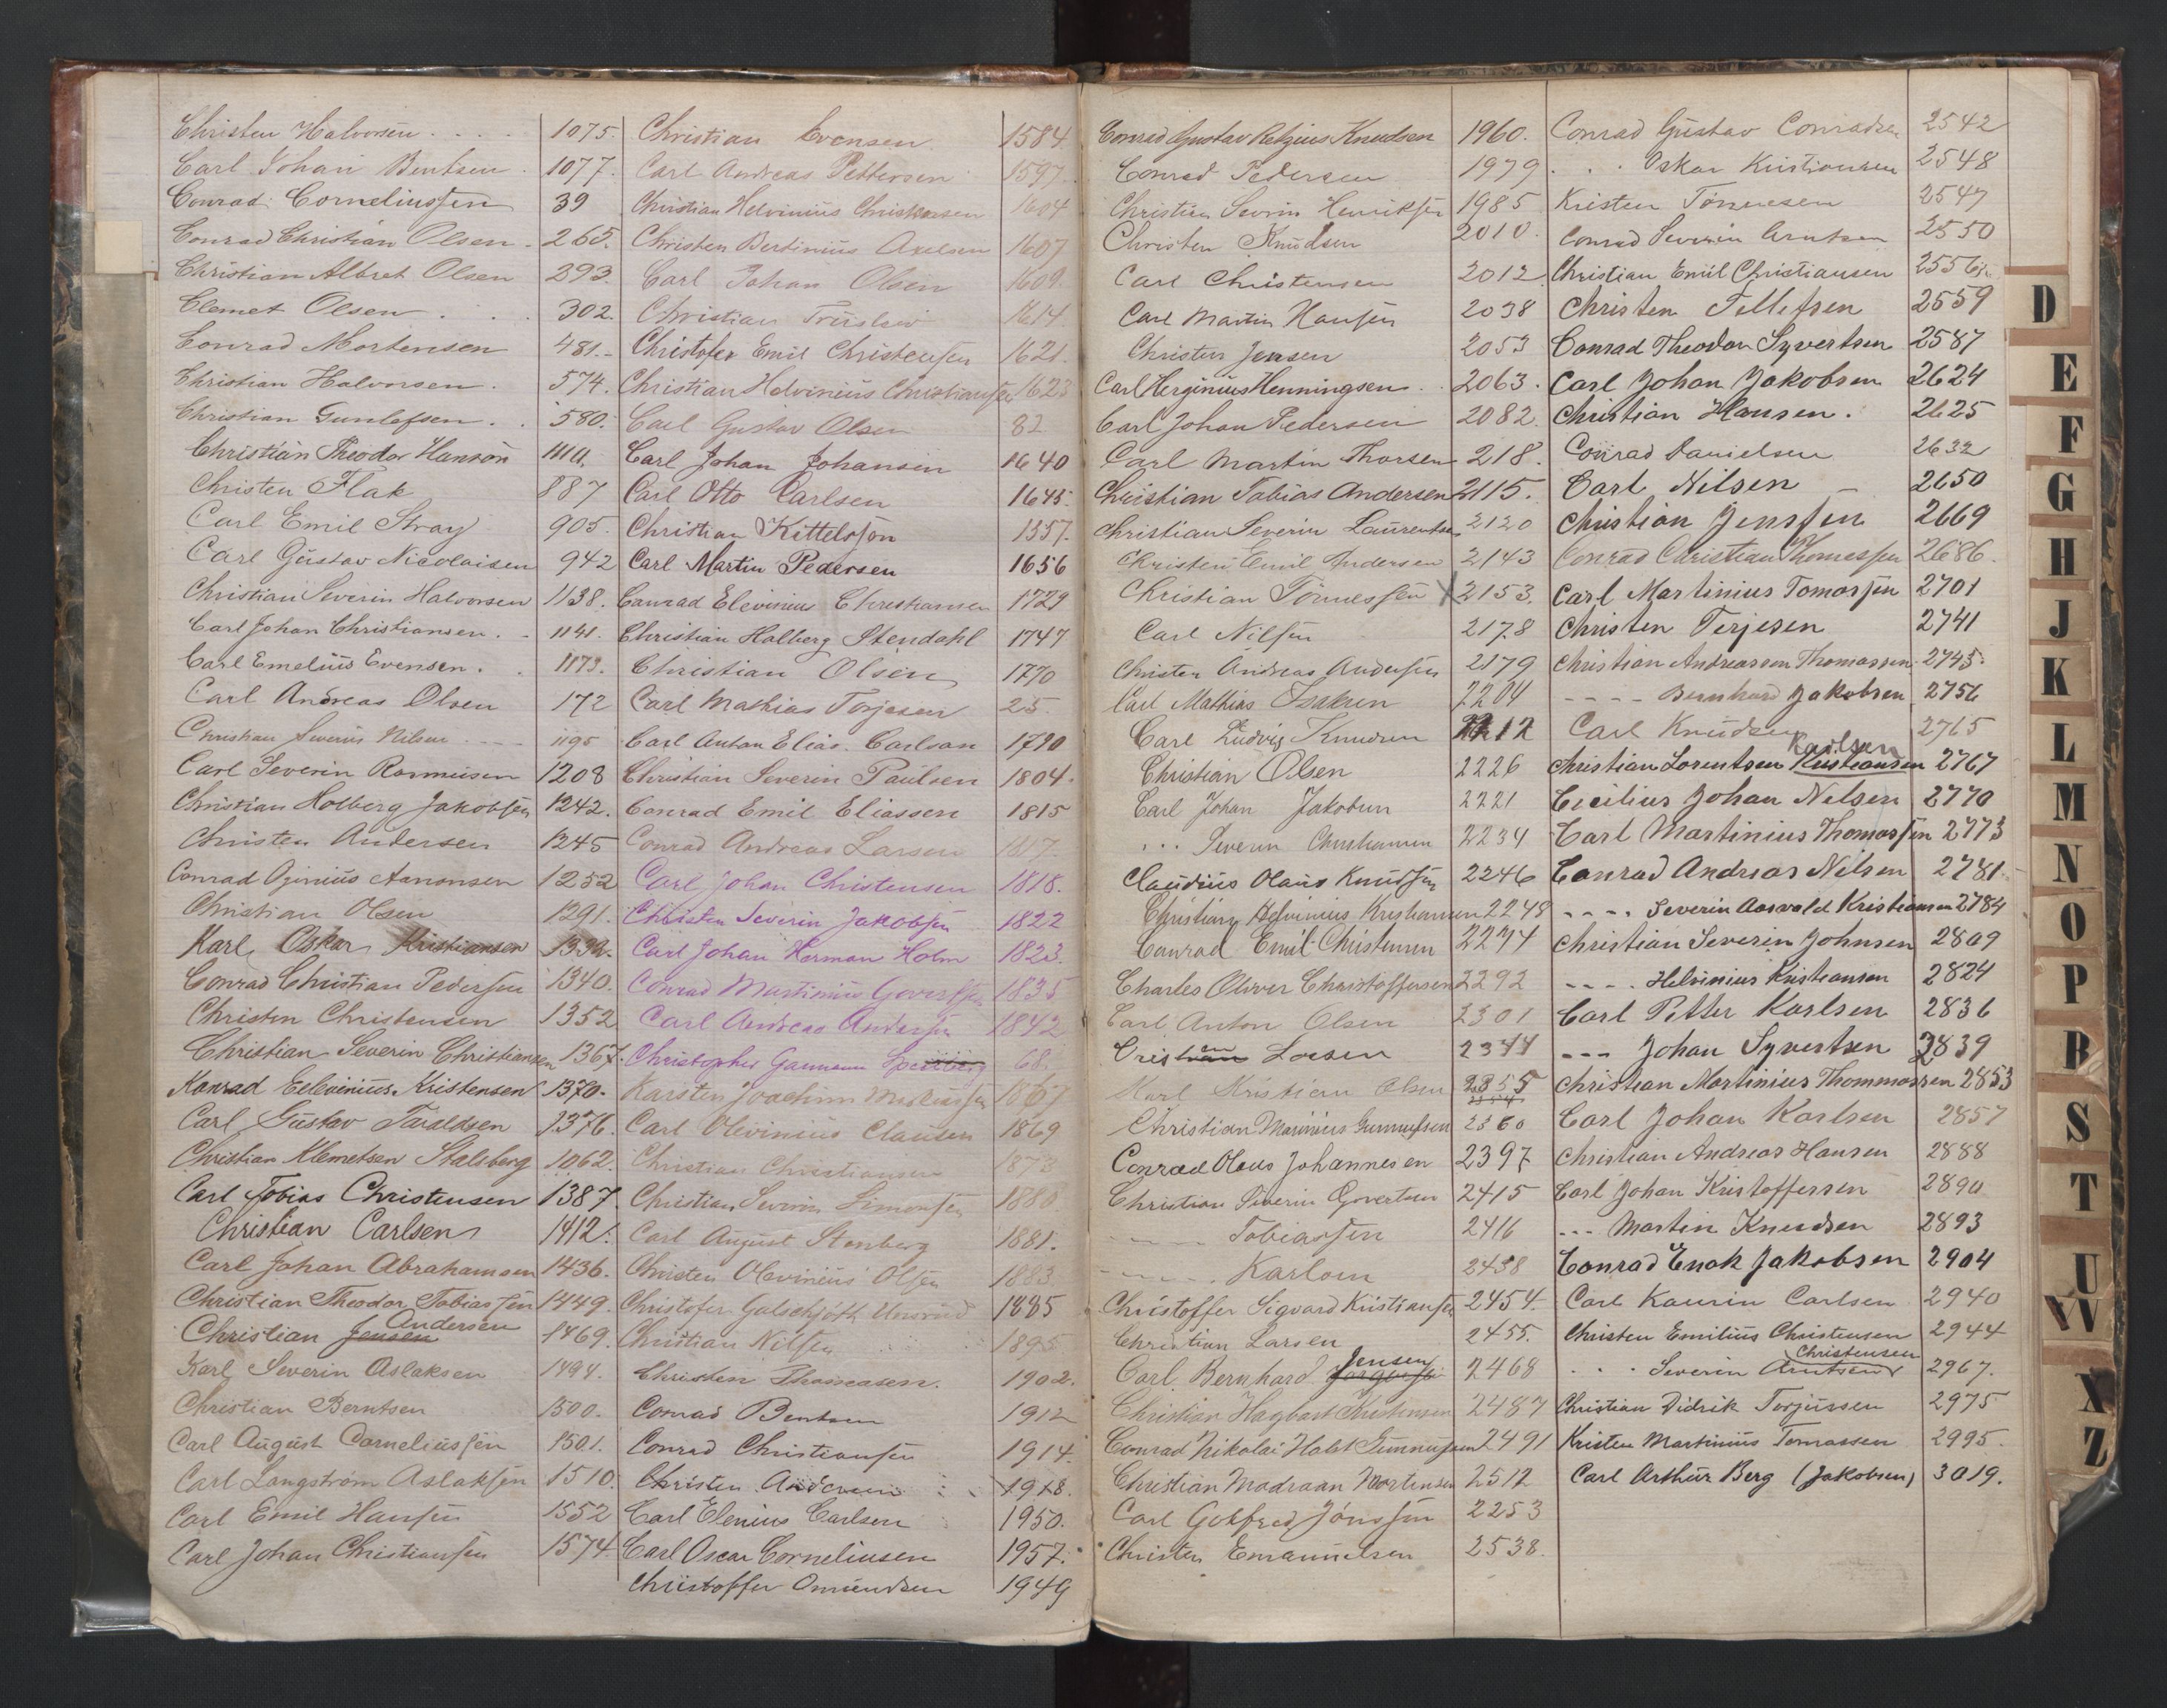 Christen Halvorsen . . . . 1075.
Carl Johan Bentsen . 1077.
Conrad Corneliussen 39
Conrad Christian Olsen . 265.
Christian Albret Olsen 293.
Clemet Olsen . . . 302.
Conrad Mortensen 481.
Christian Halvorsen . 574.
Christian Gunlefsen . . 580.
Christian Theodor Hanson
Christen Flak 887
Carl Emil Stray 905.
Carl Gustav Nicolaisen 942
Christian Severin Halvorsen 1138.
Carl Johan Christiansen . - 1141.
Carl Emelius Evensen . . 1173.
Carl Andreas Olsen 172
Christian Severin Nilsen - - - 1195
Carl Severin Rasmusen 1208
Christian Holberg Jakobsen 1242.
Christen Andersen 1245
Conrad Oginius Aanonsen 1252
Christian Olsen 1291.
Karl Oskar Kristiansen 1332.
Conrad Christian Pedersen 1340.
Christen Christensen 1352
Christian Severin Christiansen 1367.
Konrad Eelevinius Kristensen 1370.
Carl Gustav Taraldsen 1376.
Christian Klemetsen Stalsberg 1062.
Carl Tobias Christensen 1387.
Christian Carlsen 1412.
Carl Johan Abrahamsen 1436.
Christian Theodor Tobiassen 1449.
Andersen
Christian Jensen 1469.
Karl Severin Aslaksen 1494.
Christian Berntsen 1500.
Carl August Corneliussen 1501.
Carl Langstrøm Aslaksen 1510.
Carl Emil Hansen 1552
Carl Johan Christiansen 1574.
Christian Evensen 1584
Carl Andreas Pettersen 1597.
Christian Helvinius Christensen 1604
Christen Bertinius Axelsen 1607
Carl Johan Olsen 1609.
Christian 1614.
Christofer Emil Christensen 1621.
Christian Helvinius Christiansen 1623
Carl Gustav Olsen 82
Carl Johan Johansen 1640
Carl Otto Carlsen 1645.
Christian Kittelsson 1357.
Carl Martin Pedersen 1656
Conrad Elevinius Christiansen 1729
Christian Halberg Stendahl 1747
Christian Olsen 1770
Carl Mathias Torjesen 25.
Carl Anton Elias Carlson 1790
Christian Severin Paulsen 1804.
Conrad Emil Eliassen 1815
Conrad Andreas Larsen 1817.
Carl Johan Christensen 1818.
Christen Severin Jakobsen 1822
Carl Johan Herman Holm 1823.
Conrad Martinius Govertsen 1835
Carl Andreas Andersen 1842
Christopher 68.
Karsten Joachim 1867
Carl Olevinius Clausen 1869
Christian Christiansen 1873
Christian Severin Simonsen 1880
Carl August Stenberg 1881.
Christen Olevinius Olsen 1883
Christofer 1885
Christian Nilsen 1895
Christen Thomasen. 1902.
Conrad Bentsen 1912
Conrad Christiansen 1914.
Christen Andersen 1918.
Carl Elenius Carlsen 1950.
Carl Oscar Corneliusen 1957.
Christoffer Omundsen 1949
Conrad Gustav Retzius Knudsen 1960.
Conrad Pedersen 1979
Christian Sevrin Henriksen 1985
Christen Knudsen 2010.
Carl Christensen 2012
Carl Martin Hansen 2038
Christen Jensen 2053
Carl Herginius Henningsen . . 2063.
Carl Johan Pedersen 2082.
Carl Martin Thorsen 218.
Christian Tobias Andersen 2115.
Christian Severin Laurentsen 2120
Christen Emil Andersen 2143
Christian Tønnessen X 2153.
Carl Nilsen 2178
Christen Andreas Andersen 2179
Carl Mathias Isaksen 2204
Carl Ludvig Knudsen 2212
Christian Olsen 2226
Carl Johan Jakobsen 2221
. . . Severin Christiansen 2234
Claudius Olaus Knudsen 2246
Christian Helvinius Kristiansen 2248
Conrad Emil Christensen 2274
Charles Oliver Christoffersen 2292
Carl Anton Olsen 2301
Cristen Larsen 2344
Karl Kristian Olsen 2355
Christian Marinius Gunnufsen 2360
Conrad Olaus Johannesen 2397
Christian Severin Govertsen 2415
- - - - Tobiassen 2416
- - - - Karlsen 2438
Christoffer Sigvard Kristiansen 2454.
Christian Larsen 2455.
Jensen
Carl Bernhard 2468
Christian Hagbart Kristensen 2487
Conrad Nikolai Holst Gunnufsen 2491
Christian Madraan Mortensen 2512
Carl Gotfred Jonsen 2253
Christen Emanuelsen 2538.
Conrad Gustav Conradsen 2542
. . . Oskar Kristiansen 2548
Kristen Tønnesen 2547
Conrad Severin Arntsen 2550
Christian Emil Christiansen 2556
Christen Tellefsen 2559
Conrad Theodor Syvertsen 2587
Carl Johan Jakobsen 2624
Christian Hansen . 2625
Conrad Danielsen 2632
Carl Nilsen 2650
Christian Jenssen 2669
Conrad Christian Thomassen 2686.
Carl Martinius Tomassen 2701
Christen Terjesen 2741
Christian Andreassen Thomassen 2745.
- - - - Bernhard Jakobsen 2756
Carl Knudsen 2765
Karlsen
Christian Lorentsen Kristiansen 2767
Cecilius Johan Nelsen 2770
Carl Martinius Thomassen 2773
Conrad Andreas Nelsen 2781
- - - - Severin Aasvald Kristiansen 2784
Christian Severin Johnsen 2809
- - - - Helvinius Kristiansen 2824
Carl Petter Karlsen 2836
- - - Johan Syvertsen 2839
Christian Martinius Thommassen 2853
Carl Johan Karlsen 2857
Christian Andreas Hansen 2888
Carl Johan Kristoffersen 2890
- - - Martin Knudsen 2893
Conrad Enok Jakobsen 2904
Carl Kaurin Carlsen 2940
Christen Emilius Christensen 2944
Christensen
. . . Severin Arntsen 2967.
Christian Didrik Torjussen 2975
Kristen Martinius Tomassen 2995.
Carl Arthur Berg (Jakobsen) 3019.
D
E
F
G
H
J
K
L
M
N
O
P
R
S
T
U
VW
X
Z